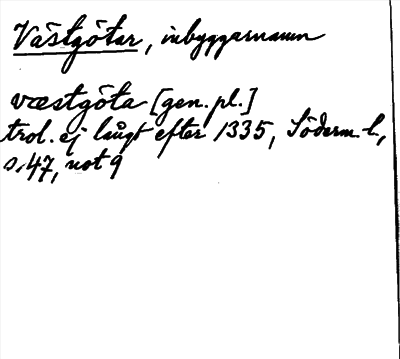 Västgötar, inbyggarnamn
væstgöta [gen. pl.]
trol. ej långt efter 1335, Söderm. l.,
s. 47, not 9